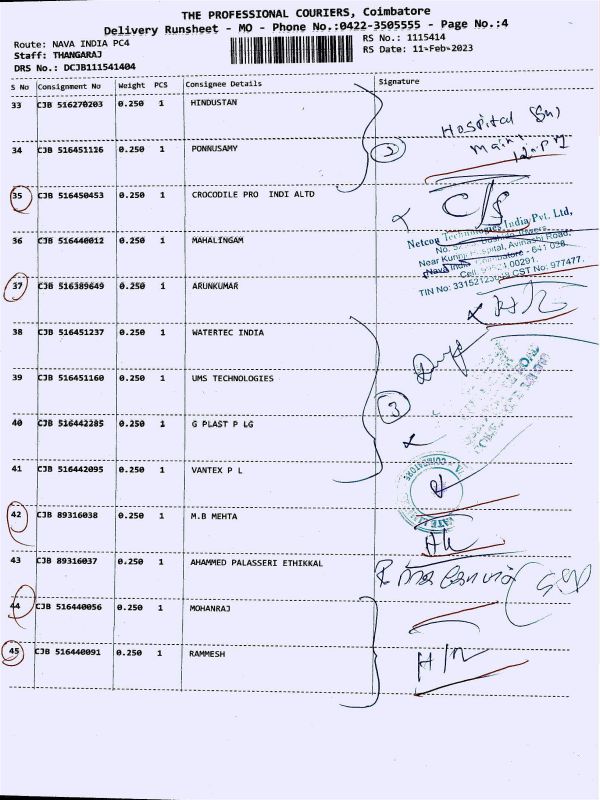 THE PROFESSIONAL COURIERS, Coimbatore
Delivery Runsheet - MO - Phone No.:0422-3505555 - Page No.:4
Route: NAVA INDIA PC4
RS No.: 1115414
Staff: THANGARAJ
RS Date: 11-Feb-2023
DRS No.: DCJB111541404
S No Consignment No Weight PCS Consignee Details Signature
33 CJB 516270203 0.250 1 HINDUSTAN
Hospital
34 CJB 516451126 0.250 1 PONNUSAMY
2
35 CJB 516450453 0.250 1 CROCODILE PRO INDI ALTD
C/S
Netcon Technologies India Pvt. Ltd,
36 CJB 516440012 0.250 1 MAHALINGAM
Near Hospital, Avinashi Road,
Nava India Coimbatore - 641 028.
Cell:
TIN No: CST No: 977477.
37 CJB 516389649 0.250 1 ARUNKUMAR
38 CJB 516451237 0.250 1 WATERTEC INDIA
39 CJB 516451160 0.250 1 UMS TECHNOLOGIES
3
40 CJB 516442285 0.250 1 G PLAST P LG
41 CJB 516442095 0.250 1 VANTEX P L
42 CJB 89316038 0.250 1 M.B MEHTA
43 CJB 89316037 0.250 1 AHAMMED PALASSERI ETHIKKAL
44 CJB 516440056 0.250 1 MOHANRAJ
45 CJB 516440091 0.250 1 RAMMESH